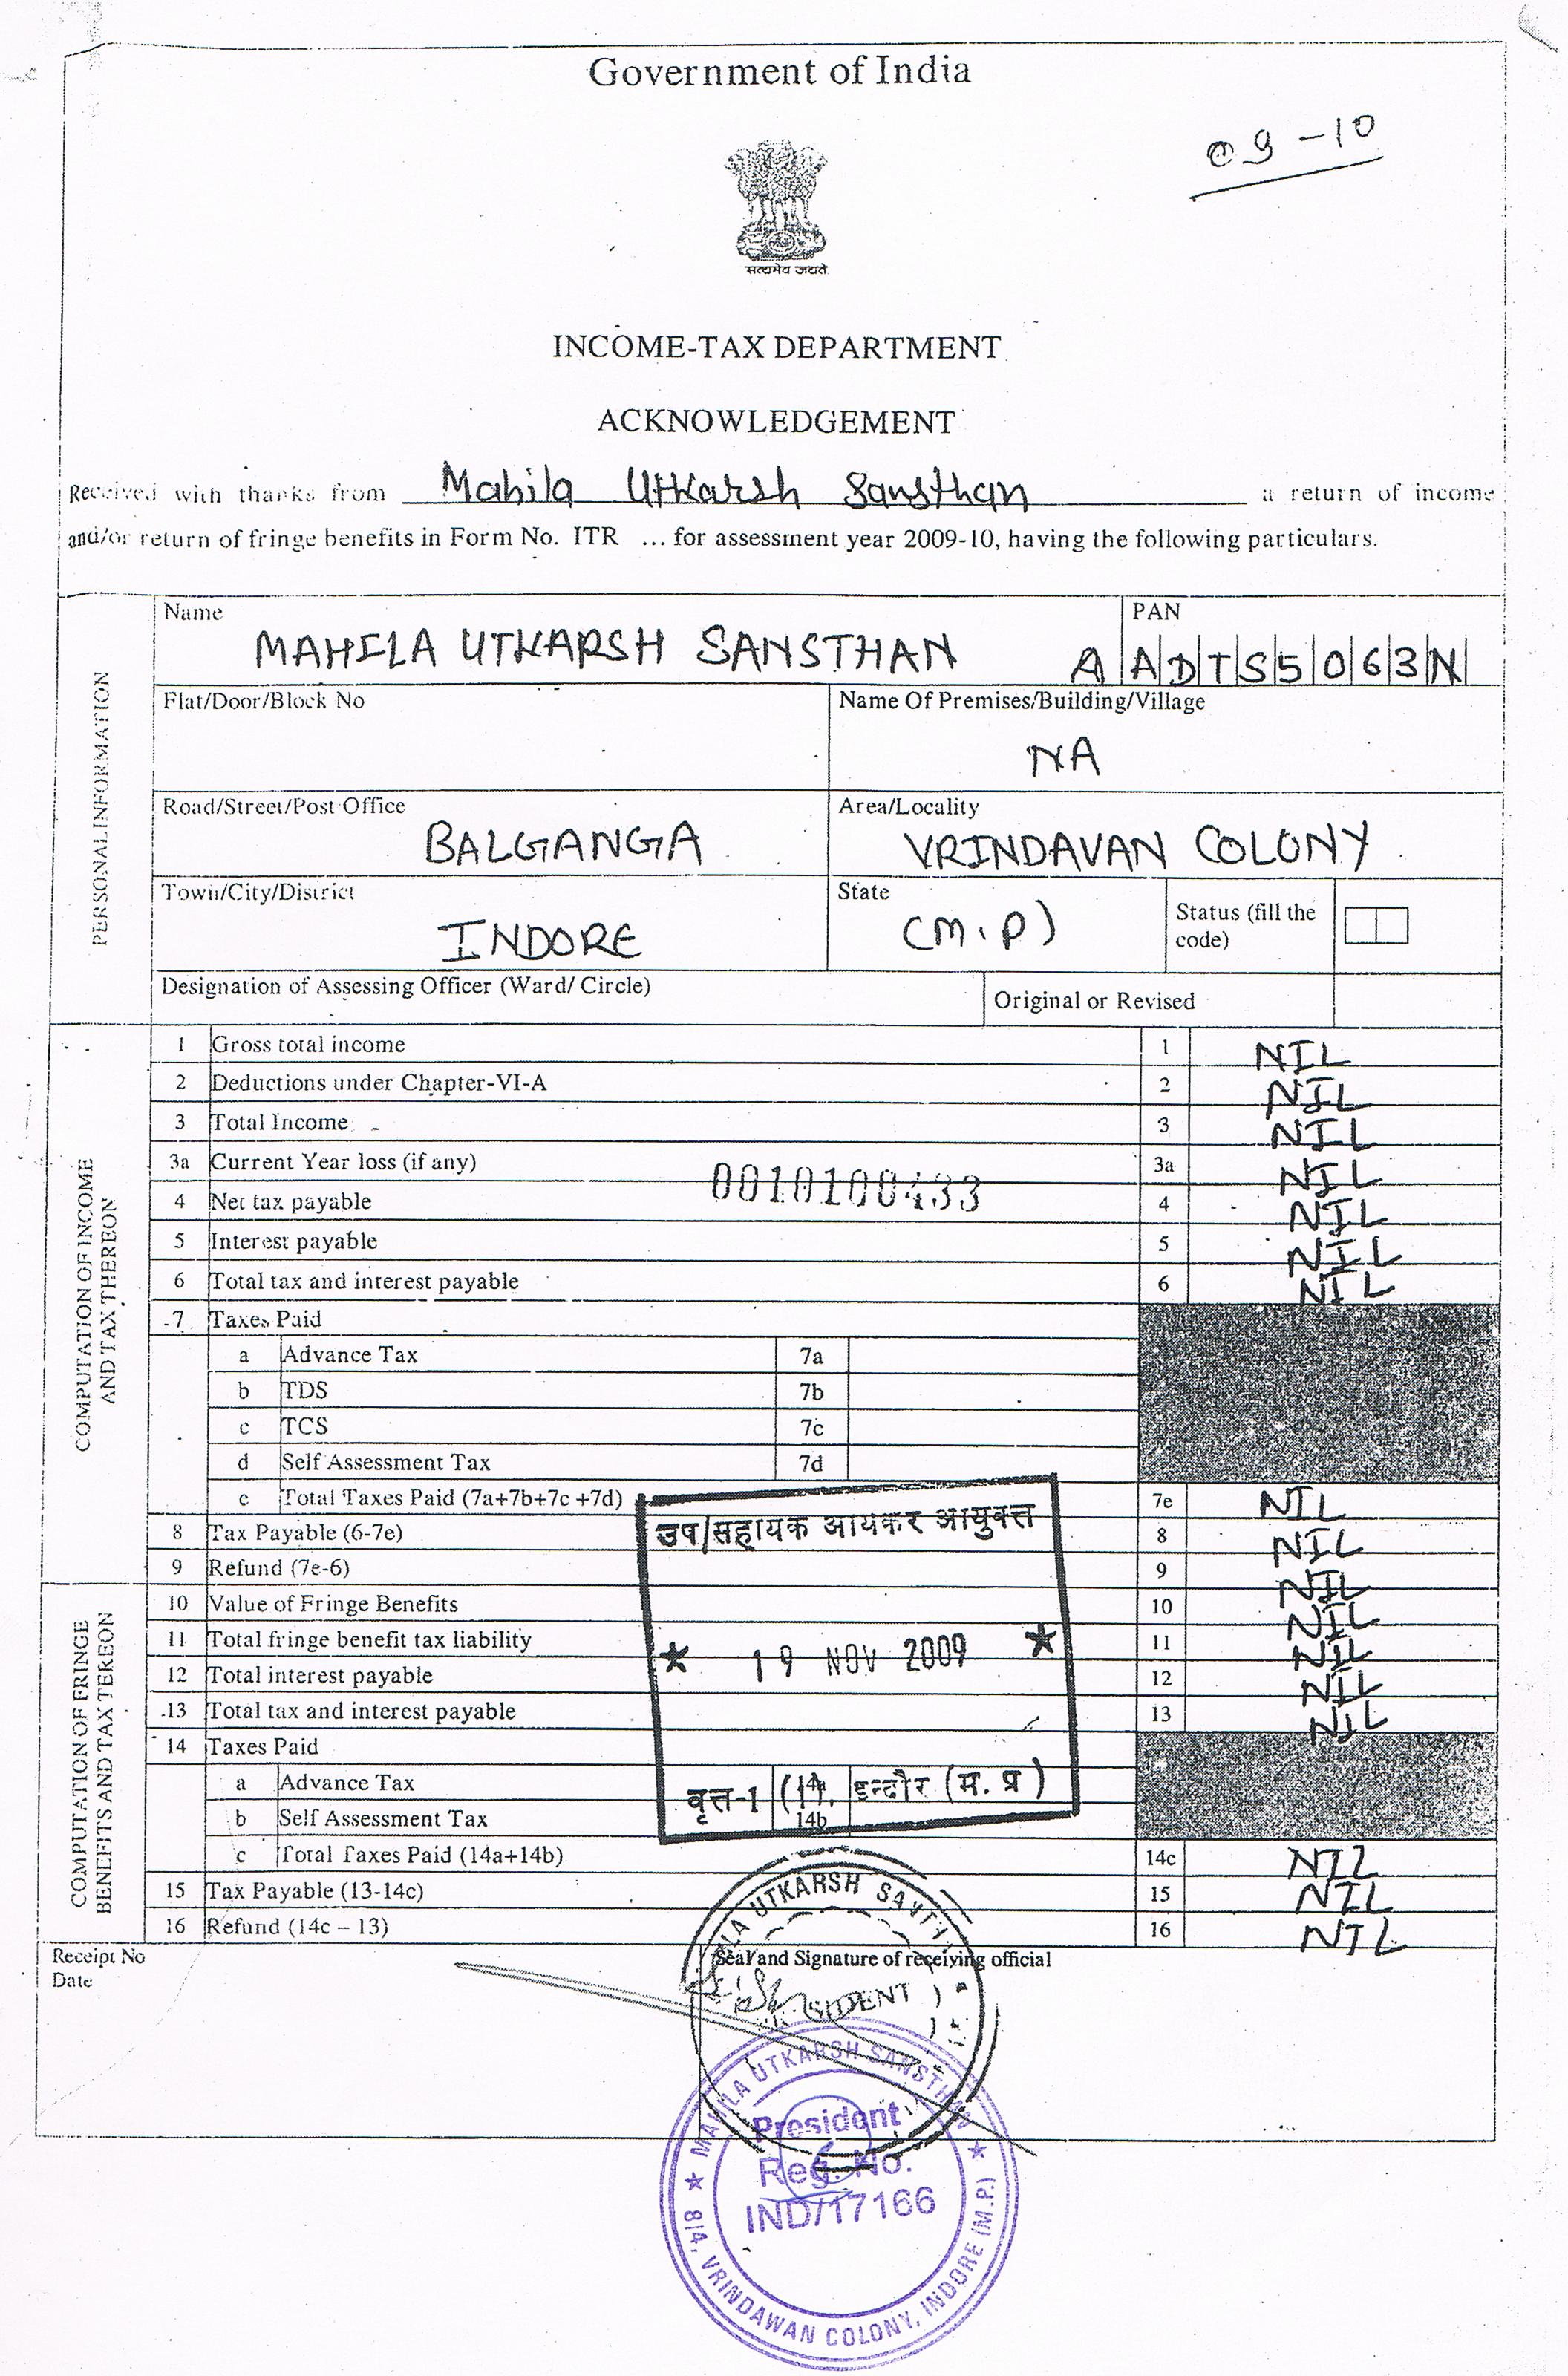 Government of India
09-10
सत्यमेव जयते
INCOME-TAX DEPARTMENT
ACKNOWLEDGEMENT
Received with thanks from Mahila Utkarsh Sansthan a return of income
and/or return of fringe benefits in Form No. ITR ... for assessment year 2009-10, having the following particulars.
PERSONAL INFORMATION
Name PAN
MAHILA UTKARSH SANSTHAN AADTS5063N
Flat/Door/Block No Name Of Premises/Building/Village
NA
Road/Street/Post Office Area/Locality
BALGANGA VRINDAVAN COLONY
Town/City/District State Status (fill the
code)
INDORE (M.P)
Designation of Assessing Officer (Ward/ Circle) Original or Revised
COMPUTATION OF INCOME
AND TAX THEREON
1 Gross total income 1 NIL
2 Deductions under Chapter-VI-A 2 NIL
3 Total Income 3 NIL
3a Current Year loss (if any) 3a NIL
0010100433
4 Net tax payable 4 NIL
5 Interest payable 5 NIL
6 Total tax and interest payable 6 NIL
7 Taxes Paid
a Advance Tax 7a
b TDS 7b
c TCS 7c
d Self Assessment Tax 7d
e Total Taxes Paid (7a+7b+7c +7d) 7e NIL
उप/सहायक आयकर आयुक्त
8 Tax Payable (6-7e) 8 NIL
9 Refund (7e-6) 9 NIL
COMPUTATION OF FRINGE
BENEFITS AND TAX TEREON
10 Value of Fringe Benefits 10 NIL
11 Total fringe benefit tax liability 11 NIL
19 NOV 2009
12 Total interest payable 12 NIL
13 Total tax and interest payable 13 NIL
14 Taxes Paid
a Advance Tax 14a
वृत्त-1 (1), इन्दौर (म. प्र)
b Self Assessment Tax 14b
c Total Taxes Paid (14a+14b) 14c NIL
15 Tax Payable (13-14c) 15 NIL
16 Refund (14c – 13) 16 NIL
Receipt No
Date
Seal and Signature of receiving official
UTKARSH
MAHILA UTKARSH SANSTHAN
President
Reg. No.
IND/17166
8/4, VRINDAWAN COLONY, INDORE (M.P.)